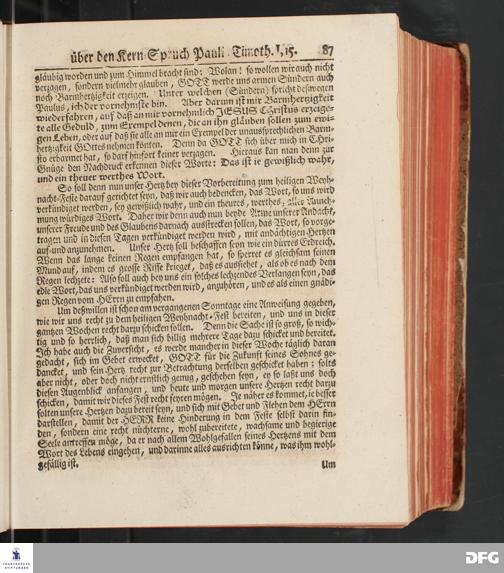 über den Kern-Spruch Pauli 1 Timoth. I, 15. 87
gläubig worden und zum Himmel bracht sind: Wolan! so wollen wir auch nicht
verzagen, sondern vielmehr glauben, GOTT werde uns armen Sündern auch
noch Barmhertzigkeit erzeigen. Unter welchen (Sündern) spricht deswegen
Paulus, ich der vornehmste bin. Aber darum ist mir Barmhertzigkeit
wiederfahren, auf daß an mir vornehmlich JESUS CHristus erzeige-
te alle Geduld, zum Exempel denen, die an ihn gläuben sollen zum ewi-
gen Leben, oder auf daß sie alle an mir ein Exempel der unaussprechlichen Barm-
hertzigkeit GOttes nehmen könten. Denn da GOTT sich über mich in CHri-
sto erbarmet hat, so darf hinfort keiner verzagen. Hieraus kan man denn zur
Gnüge den Nachdruck erkennen dieser Worte: Das ist ie gewißlich wahr,
und ein theuer werthes Wort.
So soll denn nun unser Hertz bey dieser Vorbereitung zum heiligen Weyh-
nacht-Feste darauf gerichtet seyn, daß wir auch bedencken, das Wort, so uns wird
verkündiget werden, sey gewißlich wahr, und ein theures, werthes, aller Anneh-
mung würdiges Wort. Daher wir denn auch nun beyde Arme unserer Andacht,
unserer Freude und des Glaubens darnach ausstrecken sollen, das Wort, so vorge-
tragen und in diesen Tagen verkündiget werden wird, mit andächtigen Hertzen
auf- und anzunehmen. Unser Hertz soll beschaffen seyn wie ein dürres Erdreich.
Wenn das lange keinen Regen empfangen hat, so sperret es gleichsam seinen
Mund auf, indem es grosse Risse krieget, daß es aussiehet, als ob es nach dem
Regen lechzete: Also soll auch bey uns ein solches lechzendes Verlangen seyn, das
edle Wort, das uns verkündiget werden wird, anzuhören, und es als einen gnädi-
gen Regen vom HErrn zu empfahen.
Um deßwillen ist schon am vergangenen Sonntage eine Anweisung gegeben,
wie wir uns recht zu dem heiligen Weyhnacht-Fest bereiten, und uns in dieser
gantzen Wochen recht darzu schicken sollen. Denn die Sache ist so groß, so wich-
tig und so herrlich, daß man sich billig mehrere Tage dazu schicket und bereitet.
Ich habe auch die Zuversicht, es werde mancher in dieser Woche täglich daran
gedacht, sich im Gebet erwecket, GOTT für die Zukunft seines Sohnes ge-
dancket, und sein Hertz recht zur Betrachtung derselben geschicket haben: solts
aber nicht, oder doch nicht ernstlich genug, geschehen seyn, ey so laßt uns doch
diesen Augenblick anfangen, und heute und morgen unsere Hertzen recht darzu
schicken, damit wir dieses Fest recht feyren mögen. Je näher es kommet, ie besser
solten unsere Hertzen dazu bereit seyn, und sich mit Gebet und Flehen dem HErrn
darstellen, damit der HERR keine Hinderung in dem Feste selbst darin fin-
den, sondern eine recht nüchterne, wohl zubereitete, wachsame und begierige
Seele antreffen möge, da er nach allem Wohlgefallen seines Hertzens mit dem
Wort des Lebens eingehen, und darinne alles ausrichten könne, was ihm wohl-
gefällig ist. Um
FRANCKESCHE
STIFTUNGEN
DFG